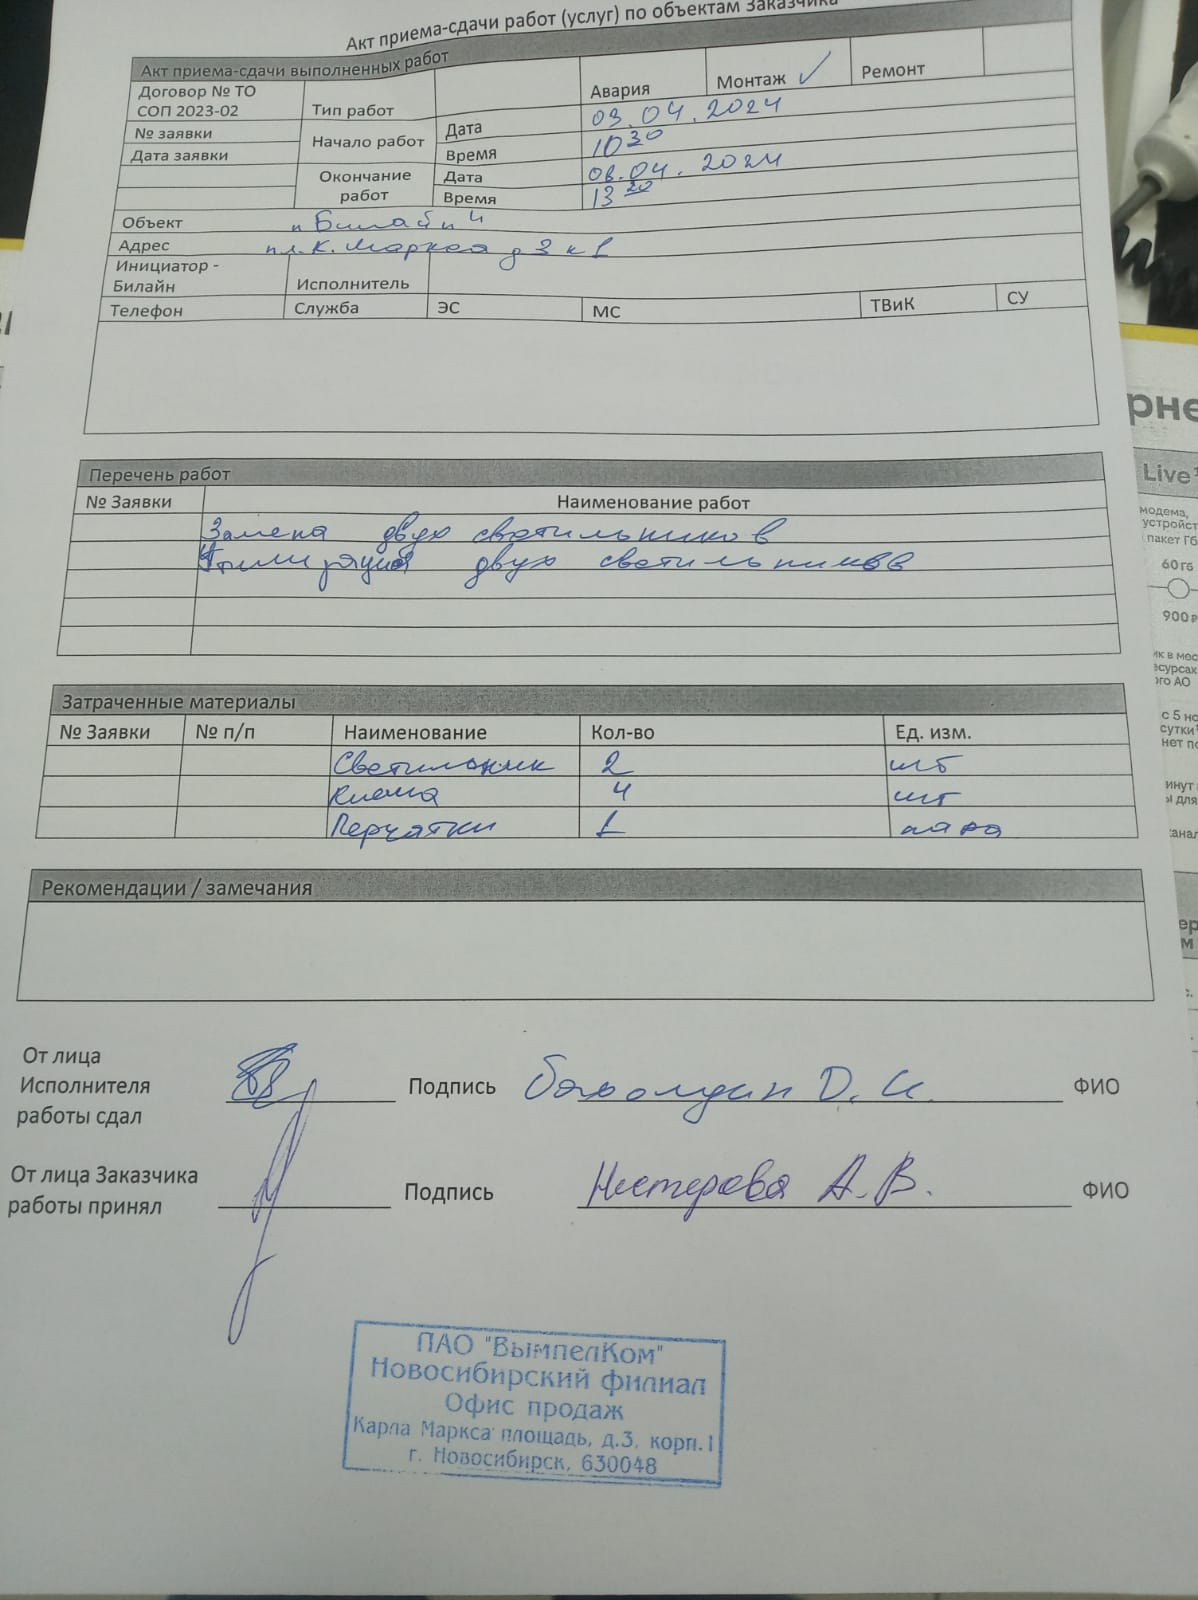 Акт приема-сдачи работ (услуг) по объектам Заказчика
Акт приема-сдачи выполненных работ
Договор № ТО СОП 2023-02 Тип работ Авария Монтаж ✓ Ремонт
№ заявки Начало работ Дата 03.04.2024
Дата заявки Время 10 30
Окончание работ Дата 08.04.2024
Время 13 20
Объект "Билайн"
Адрес пл. К. Маркса д 3 к 1
Инициатор - Билайн Исполнитель
Телефон Служба ЭС МС ТВиК СУ
Перечень работ
№ Заявки Наименование работ
Замена двух светильников
двух светильников
Затраченные материалы
№ Заявки № п/п Наименование Кол-во Ед. изм.
Светильник 2 шт
Клема 4 шт
Перчатки 1 пара
Рекомендации / замечания
От лица
Исполнителя Подпись Д. И. ФИО
работы сдал
От лица Заказчика Подпись Нестерова А.В. ФИО
работы принял
ПАО "ВымпелКом"
Новосибирский филиал
Офис продаж
Карла Маркса площадь, д.3, корп.1
г. Новосибирск, 630048
рне
Live
модема,
устройст
пакет Гб
60 Гб
900 ₽